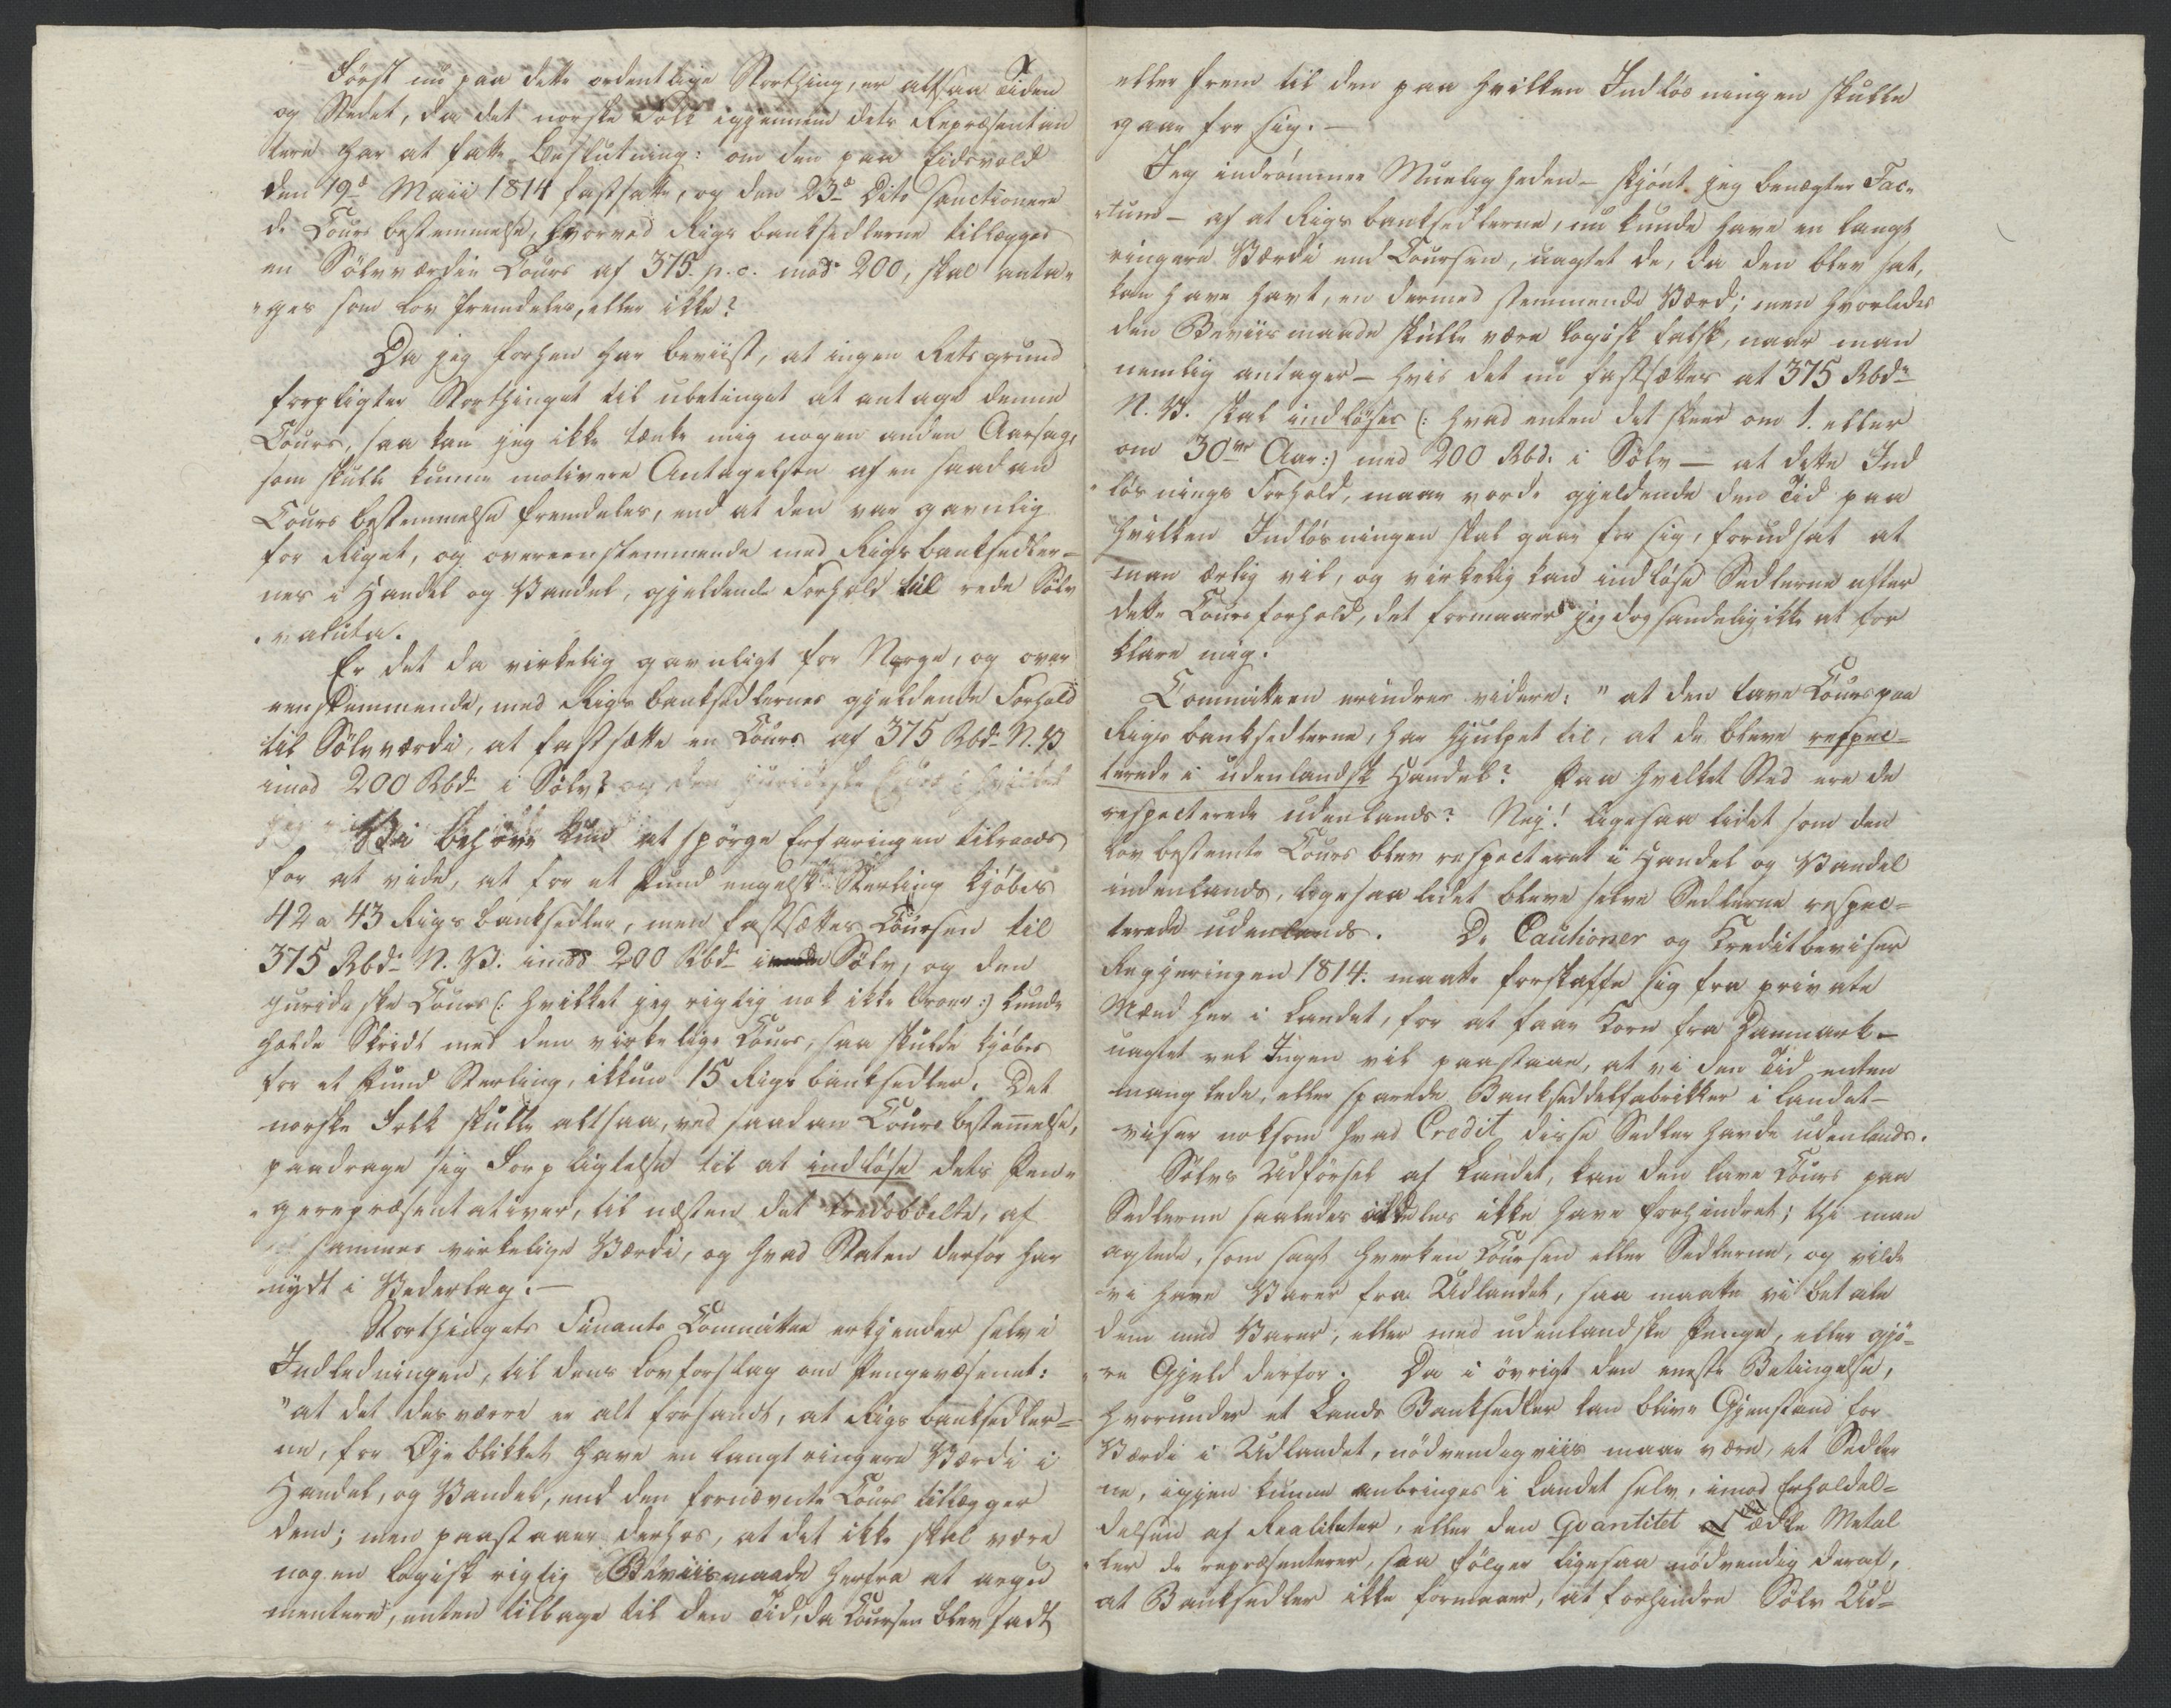 Först nu paa dette ordentlige Storthing, er altsaa Tiden
og Stedet, da det norske Folk igjennem dets Repræsentan
tere har at fatte Beslutning: om den paa Eidsvold
den 19d Maii 1814 fastsatte, og den 23d Dito sanctionere
de Cours bestemmelse, hvorved Rigsbanksedlerne tillægges
en Sölvværdies Cours af 375. p. c. mod 200, skal anta-
"ges som Lov fremdeles, eller ikke?
Da jeg forhen har beviist, at ingen Retsgrund
forpligter Storthinget til ubetinget at antage denne
Cours, saa kan jeg ikke tænke mig nogen anden Aarsag,
som skulle kunne motivere Antagelsen af en saadan
Cours bestemmelse fremdeles, end at den var gavnlig
for Riget, og overeenstemmende med Rigsbanksedler-
nes i Handel og Vandel, gjeldende Forhold til rede Sölv
"valuta.
Er det da virkelig gavnligt for Norge, og over
eenstemmende, med Rigsbanksedlernes gjeldende Forhold
til Sölvværdi, at fastsætte en Cours af 375 Rbd. N. V.
imod 200 Rbd. i Sölv?
Vi behöve kun at spörge Erfaringen tilraads
for at vide, at for et Pund engelsk Sterling kjöbes
42 a 43 Rigsbanksedler, men fastsættes Coursen til
375 Rbd. N. V. imod 200 Rbd. i Sölv, og den
juridiske Cours (: hvilket jeg rigtig nok ikke troer :) kunde
holde Skridt med den virkelige Cours, saa skulde kjöbes
for et Pund Sterling, ikkun 15 Rigsbanksedler. Det
norske Folk skulle altsaa, ved saadan Cours bestemelse,
paadrage sig Forpligtelse til at indlöse dets Pen-
"gerepræsentativer, til næsten det tredobbelte, af
sammes virkelige Værdi, og hvad Staten derfor har
nydt i Vederlag. —
Storthingets Finants Committee erkjender selv i
Indledningen, til dens Lovforslag om Pengevæsenet:
"at det desværre er alt forsandt, at Rigsbanksedler=
ne, for Öjeblikket have en langt ringere Værdi i
Handel, og Vandel, end den fornævnte Cours tillægger
dem; men paastaaer derhos, at det ikke skal være
nogen logisk rigtig Beviismaade herfra at argu
mentere, enten tilbage til den Tid, da Coursen blev sadt
eller frem til den paa hvilken Indlösningen skulle
gaae for sig. —
Jeg indrömmer Mueligheden — skjönt jeg benægter Fac-
"tum — af at Rigsbanksedlerne, nu kunde have en langt
ringere Værdi end Coursen, uagtet de, da den blev sat,
kan have havt, en dermed stemmende Værd; men hvorledes
den Beviismaade skulle være logisk falsk, naar man
nemlig antager — hvis det nu fastsættes at 375 Rbd.
N. V. skal indlöses (: hvad enten det skeer om 1. eller
om 30ve Aar :) med 200 Rbd. i Sölv — at dette Ind
"lösnings Forhold, maae vorde gjeldende den Tid paa
hvilken Indlösningen skal gaae for sig, forudsat at
man ærlig vil, og virkelig kan indlöse Sedlerne efter
dette Cours forhold, det formaaer jeg dog sandelig ikke at for
klare mig.
Committeen erindrer videre: "at den lave Cours paa
Rigsbanksedlerne, har hjulpet til, at de bleve respec=
terede i udenlandsk Handel? Paa hvilket Sted ere de
respecterede udenlands? Nej! ligesaa lidet som den
lov bestemte Cours blev respecteret i Handel og Vandel
indenlands, ligesaa lidet bleve selve Sedlerne respec=
terede udenlands. De Cautioner og Kreditbeviser
Regjeringen 1814. maatte forskaffe sig fra private
Mænd her i Landet, for at faae Korn fra Danmark —
uagtet vel Ingen vil paastaae, at vi den Tid enten
manglede, eller sparede Bankseddelfabrikker i Landet —
viser noksom hvad Credit disse Sedler havde udenlands.
Sölvs Udförsel af Landet, kan den lave Cours paa
Sedlerne saaledes aldeles ikke have forhindret; thi man
agtede, som sagt hverken Coursen eller Sedlerne, og vilde
vi have Varer fra Udlandet, saa maatte vi betale
dem med Varer, eller med udenlandske Penge, eller gjö=
"re Gjeld derfor. Da i övrigt den eneste Betingelse,
hvorunder et Lands Banksedler kan blive Gjenstand for
Værdi i Udlandet, nödvendigviis maae være, at Sedler
ne, igjen kunne anbringes i Landet selv, imod Erholdel=
delsen af Realiteter, eller den Qvantitet ædle Metal
"ler de repræsenterer, saa fölger ligesaa nödvendig deraf,
at Banksedler ikke formaaer, at forhindre Sölv Ud=